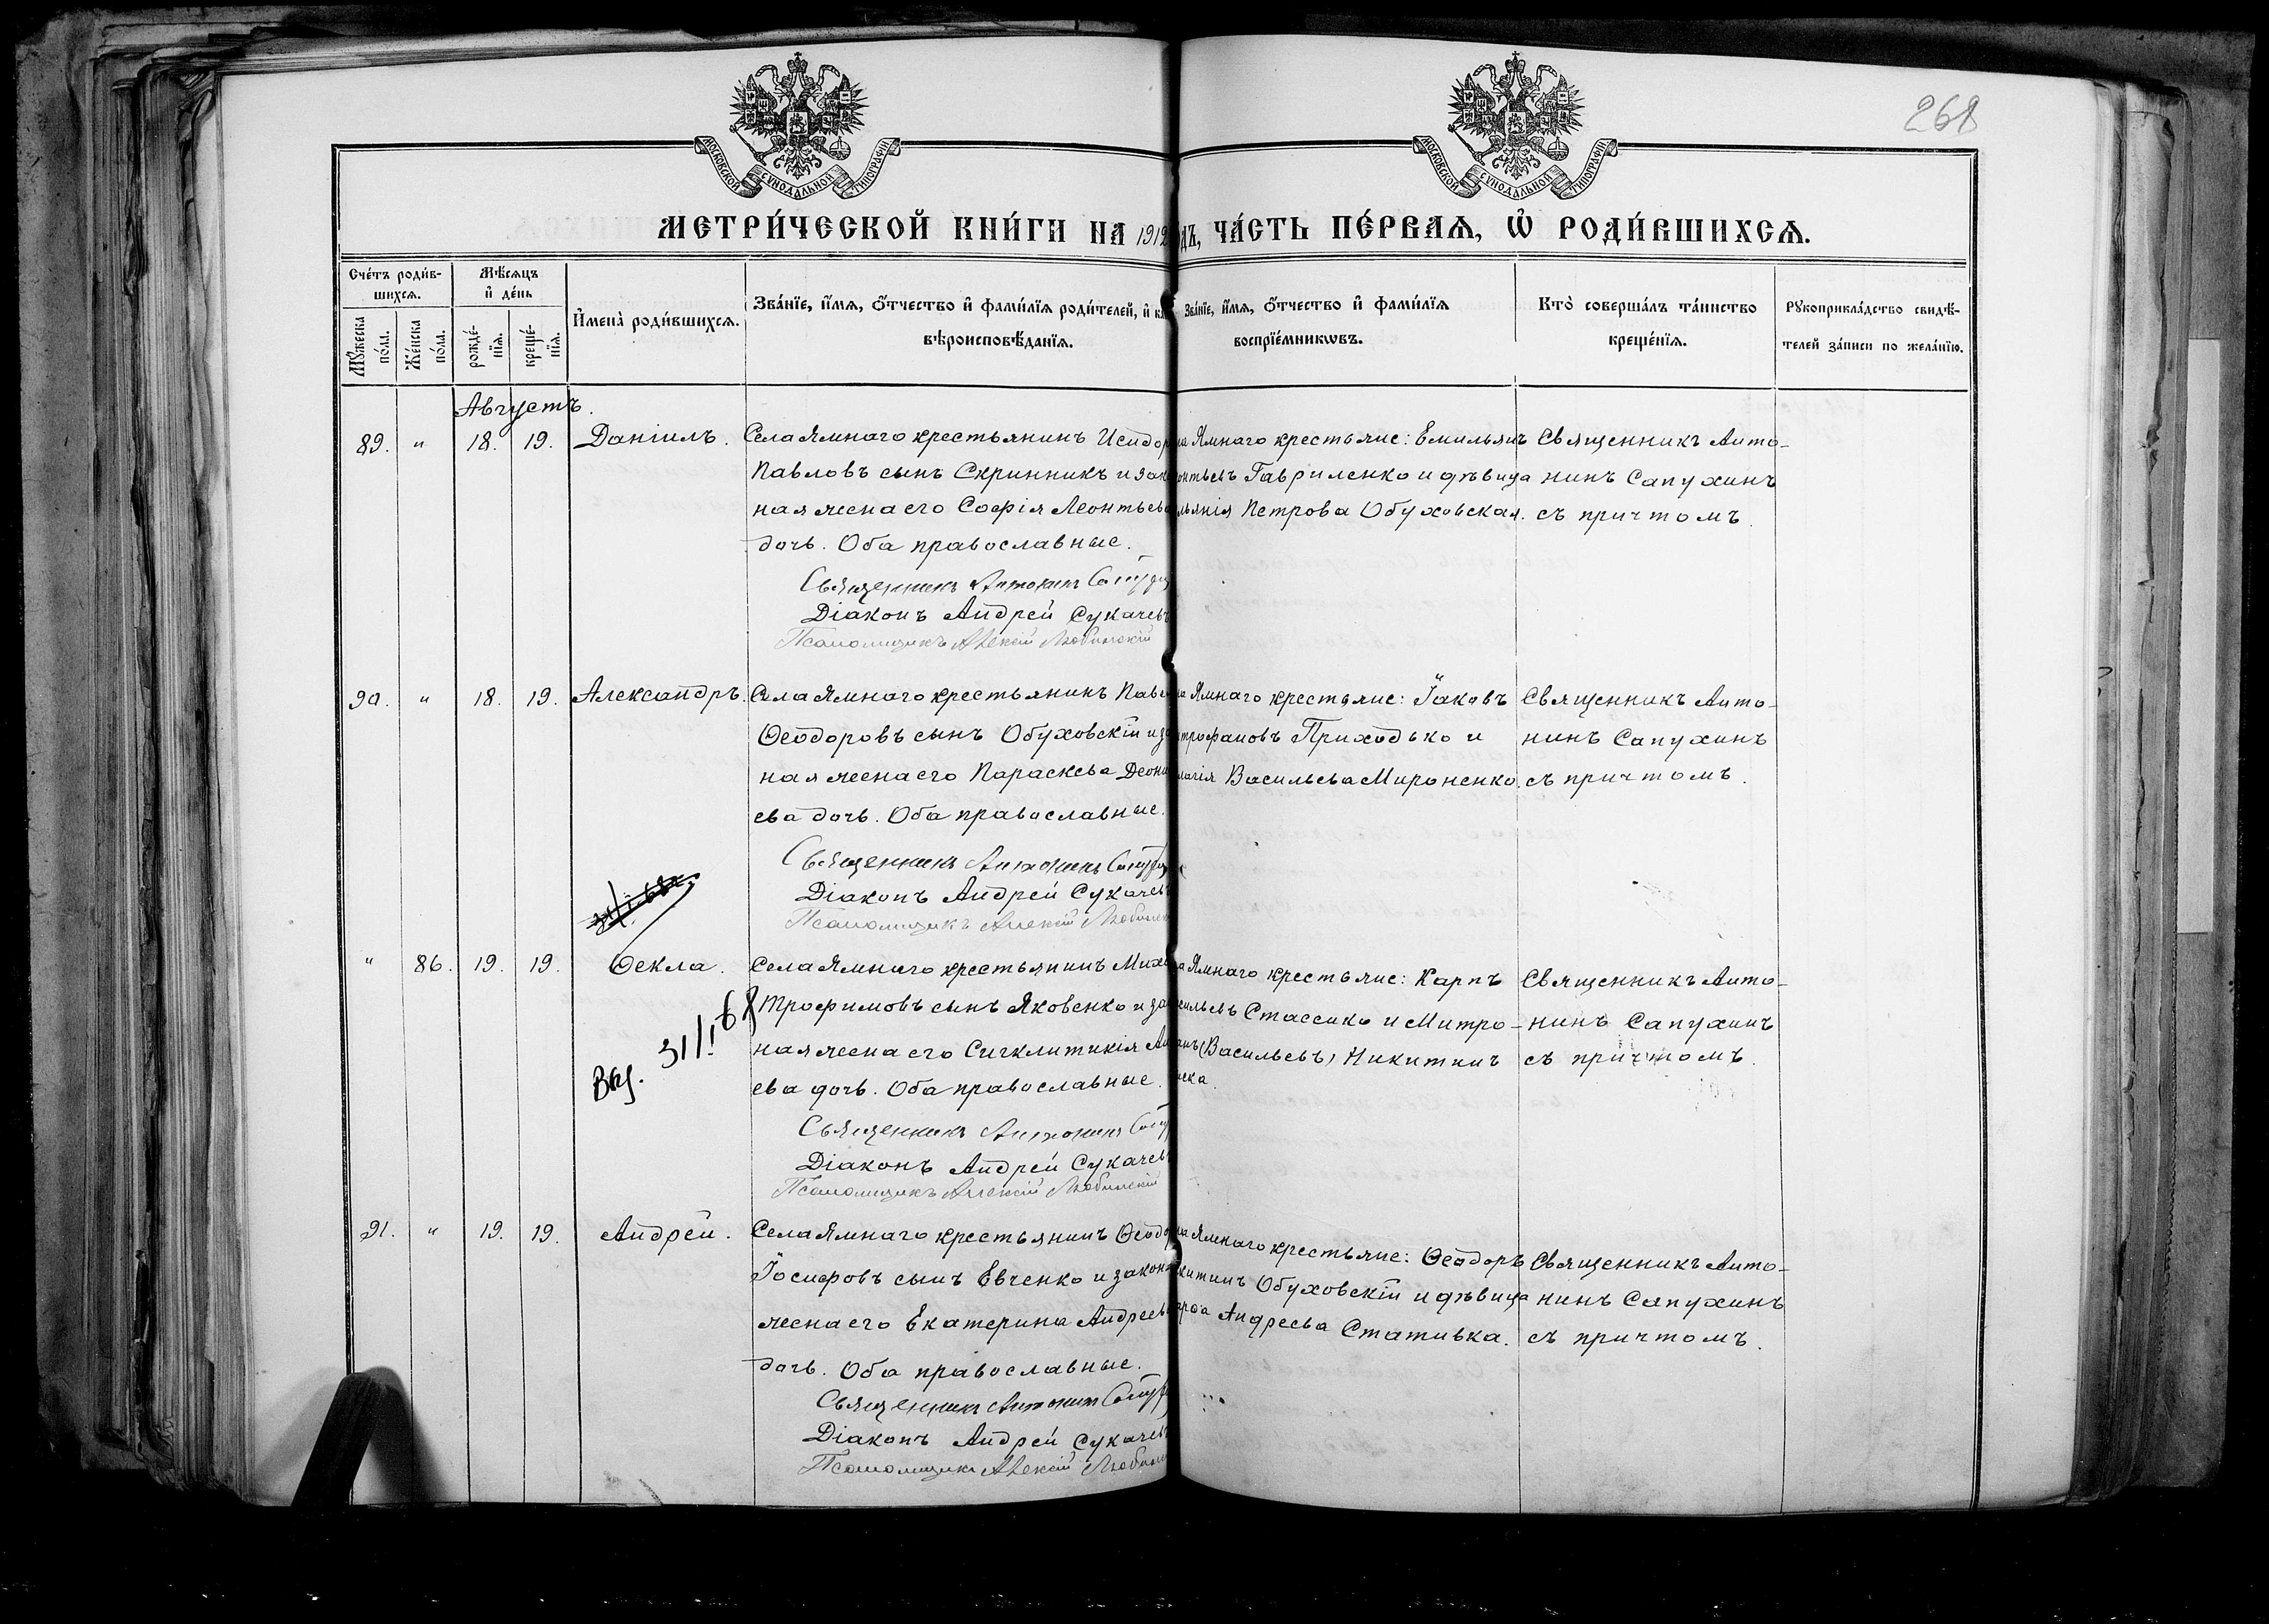 268
МОСКОВСКОЙ СѴНОДАЛЬНОЙ ТИПОГРАФІИ
МОСКОВСКОЙ СѴНОДАЛЬНОЙ ТИПОГРАФІИ
МЕТРИ́ЧЕСКОЙ КНИ́ГИ НА 1912 ДЪ, ЧА́СТЬ ПЕ́РВАѦ, Ѡ҆ РОДИ́ВШИХСѦ.
Сче́тъ роди́в-
шихсѧ.
Мꙋ́жеска
по́ла.
Же́нска
по́ла.
Мѣ́сѧцъ
и҆ де́нь
рожде́-
нїѧ.
креще́-
нїѧ.
И҆мена̀ роди́вшихсѧ.
Зва́нїе, и҆́мѧ, ѻ҆́тчество и҆ фами́лїѧ роди́телей, и҆
вѣроисповѣ́данїѧ.
Зва́нїе, и҆́мѧ, ѻ҆́тчество и҆ фами́лїѧ
воспрїе́мникѡвъ.
Кто̀ соверша́лъ та́инство
креще́нїѧ.
Рꙋкоприкла́дство свидѣ́-
телей за́писи по жела́нїю.
Августъ.
89. " 18. 19. Даніилъ.
Села Ямнаго крестьянинъ Исидор
Павловъ сынъ Скринникъ и зак
ная жена его Софія Леонтьева
дочь. Оба православные.
Священникъ Антонинъ Сапух
Діаконъ Андрей Сукачевъ
Псаломщикъ Алексій Любинскій
на Ямнаго крестьяне: Емильянъ
онтьевъ Гавриленко и дѣвица
льянія Петрова Обуховская.
Священникъ Анто-
нинъ Сапухинъ
съ причтомъ.
90. " 18. 19. Александръ.
Села Ямнаго крестьянинъ Павел
Ѳеодоровъ сынъ Обуховскій и за
ная жена его Параскева Деони
ева дочь. Оба православные.
Священникъ Антонинъ Сапух
Діаконъ Андрей Сукачевъ
Псаломщикъ Алексій Любинск
на Ямнаго крестьяне: Іаковъ
итрофановъ Приходько и
лагія Васильева Мироненко.
Священникъ Анто-
нинъ Сапухинъ
съ причтомъ.
" 86. 19. 19. Ѳекла.
Выд. 31/I 68
Села Ямнаго крестьянинъ Миха
Трофимовъ сынъ Яковенко и за
ная жена его Сигклитикія Ан
ева дочь. Оба православные.
Священникъ Антонинъ Сапу
Діаконъ Андрей Сукачевъ
Псаломщикъ Алексій Любинскій
на Ямнаго крестьяне: Карпъ
сильевъ Стасенко и Митро-
анъ (Васильевъ) Никитинъ
нека.
Священникъ Анто-
нинъ Сапухинъ
съ причтомъ.
91. " 19. 19. Андрей.
Села Ямнаго крестьянинъ Ѳеодо
Іосифовъ сынъ Евченко и закон
жена его Екатерина Андреева
дочь. Оба православные.
Священникъ Антонинъ Сапух
Діаконъ Андрей Сукачевъ
Псаломщикъ Алексій Любинс
на Ямнаго крестьяне: Ѳеодоръ
китинъ Обуховскій и дѣвица
Андреева Стативка.
Священникъ Анто-
нинъ Сапухинъ
съ причтомъ.